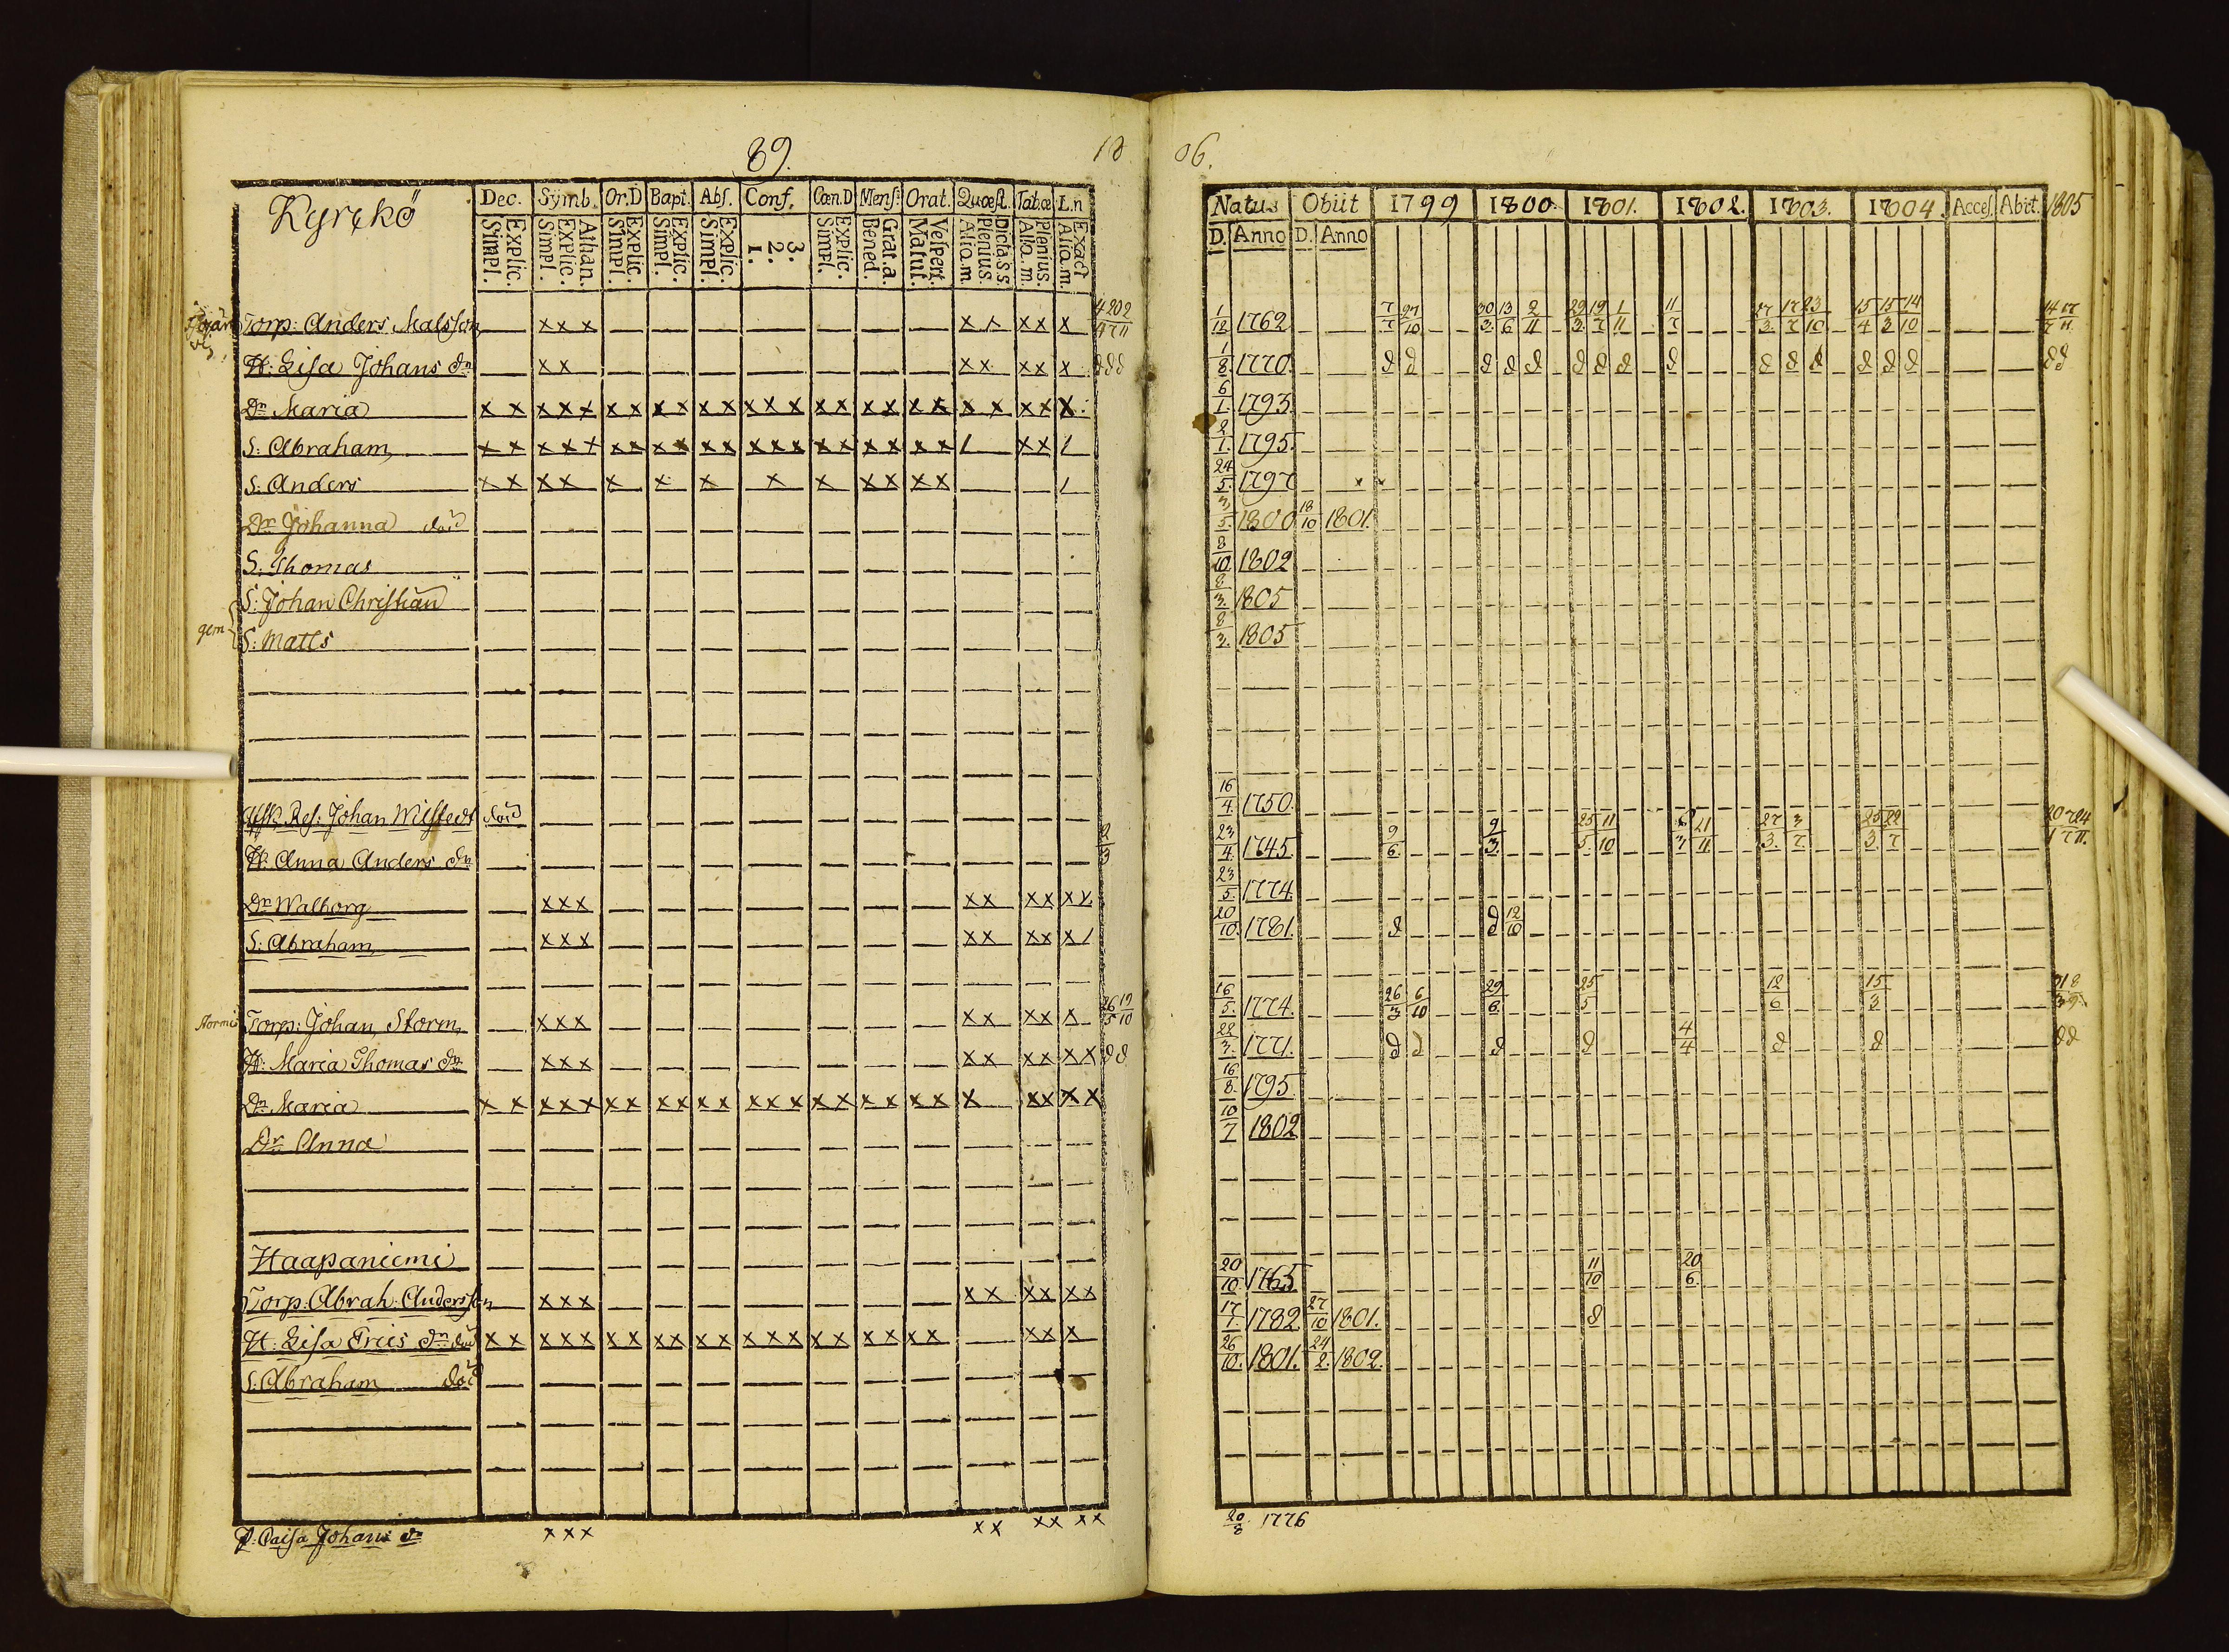 89.
Kyrkö
Dec. Symb. Or.D Bapt. Abs. Conf. Cœn.D Mens. Orat. Quæst. Tabœ L.n
Explic. Simpl. Athan. Explic. Simpl. Explic. Simpl. Explic. Simpl. Explic. Simpl. 3. 2. 1. Explic. Simpl. Grat.a. Bened. Vespert. Matut. Dicta.s.s. Plenius. Aliq.m. Plenius. Aliq.m. Exact Aliq.m.
Torp: Anders Matsson x x x x x x x x
H: Lisa Johans dr x x x x x x x
Dr Maria x x x x x x x x x x x x x x x x x x x x x x x x x x
S: Abraham x x x x x x x x x x x x x x x x x x x x / x x /
S: Anders x x x x x x x x x x x x x /
Dr Johanna död
S: Thomas
S: Johan Christian
S: Matts
Johan Wistedt död
H: Anna Anders dr
Dr Walborg x x x x x x x x x
S: Abraham x x x x x x x x /
Torp: Johan Storm x x x x x x x x
H: Maria Thomas dr x x x x x x x x x
Dr Maria x x x x x x x x x x x x x x x x x x x x x x x x x
Dr Anna
Haapaniemi
Torp: Abrah: Andersson x x x x x x x x x
H: Lisa Eriks dr död x x x x x x x x x x x x x x x x x x x x x x x
S: Abraham död
Caisa Johans dr x x x x x x x x x
18 06.
Natus Obiit 1799 1800. 1801. 1802. 1803. 1804. Acces Abit. 1805
D. Anno D. Anno
1/12 1762 7/7 27/10 30/3 13/6 2/11 29/3 19/7 1/11 11/7 27/3 17/7 23/10 15/4 15/3 14/10
1/8 1770 d d d d d d d d d d d d d d d d d
6/1 1793.
2/1 1795.
24/5 1797
3/5 1800 18/10 1801.
8/10 1802
8/3 1805
8/3. 1805
16/4. 1750.
23/4. 1745. 9/6. 9/3. 25/5 11/10 21/11 27/3. 3/7. 25/3 22/7
23/5 1774.
20/10 1781. d d 12/10
16/5. 1774. 26/3 6/10 29/6 25/5 12/6 15/3
22/3. 1771. d d d d 4/4 d d d d
16/8. 1795
10/7 1802
20/10. 1765 11/10 20/6.
17/7. 1782 27/10 1801. d
26/10. 1801. 24/2. 1802.
20/8 1776